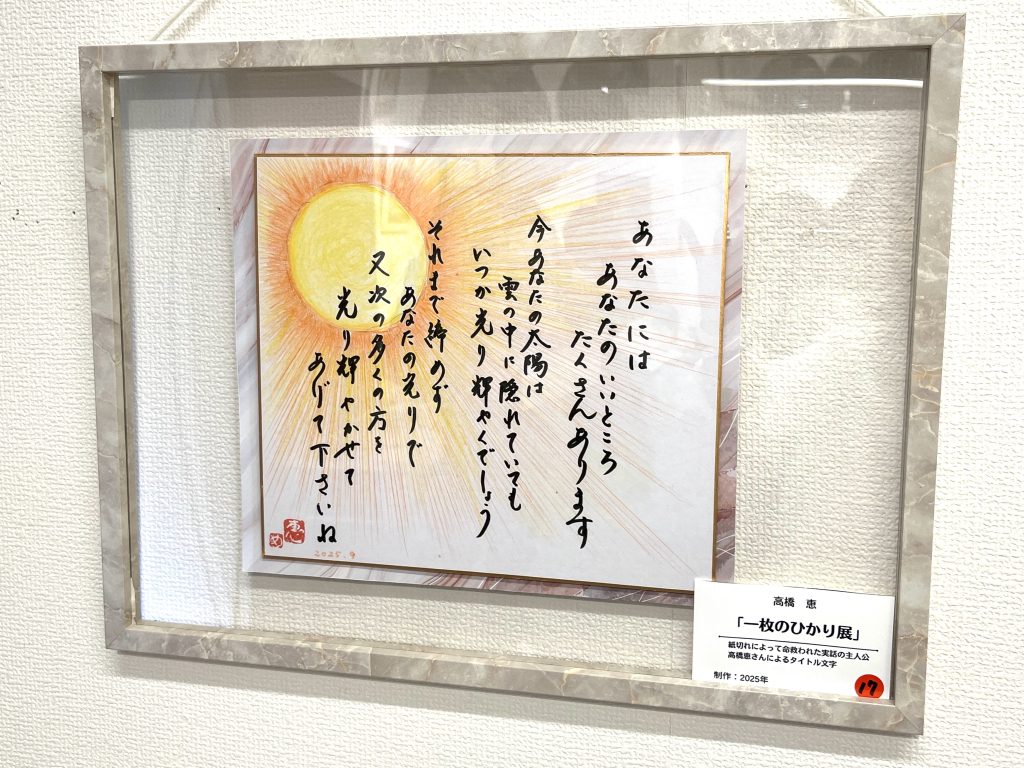 あなたには
あなたのいいところ
たくさんあります
今あなたの太陽は
雲の中に隠れていても
いつか光り輝やくでしょう
それまで締めず
あなたの光りで
又次の多くの方を
光り輝やかせて
あげて下さいね
恵心
め
2025.9
高橋 恵
「一枚のひかり展」
紙切れによって命救われた実話の主人公
高橋恵さんによるタイトル文字
制作：2025年
17